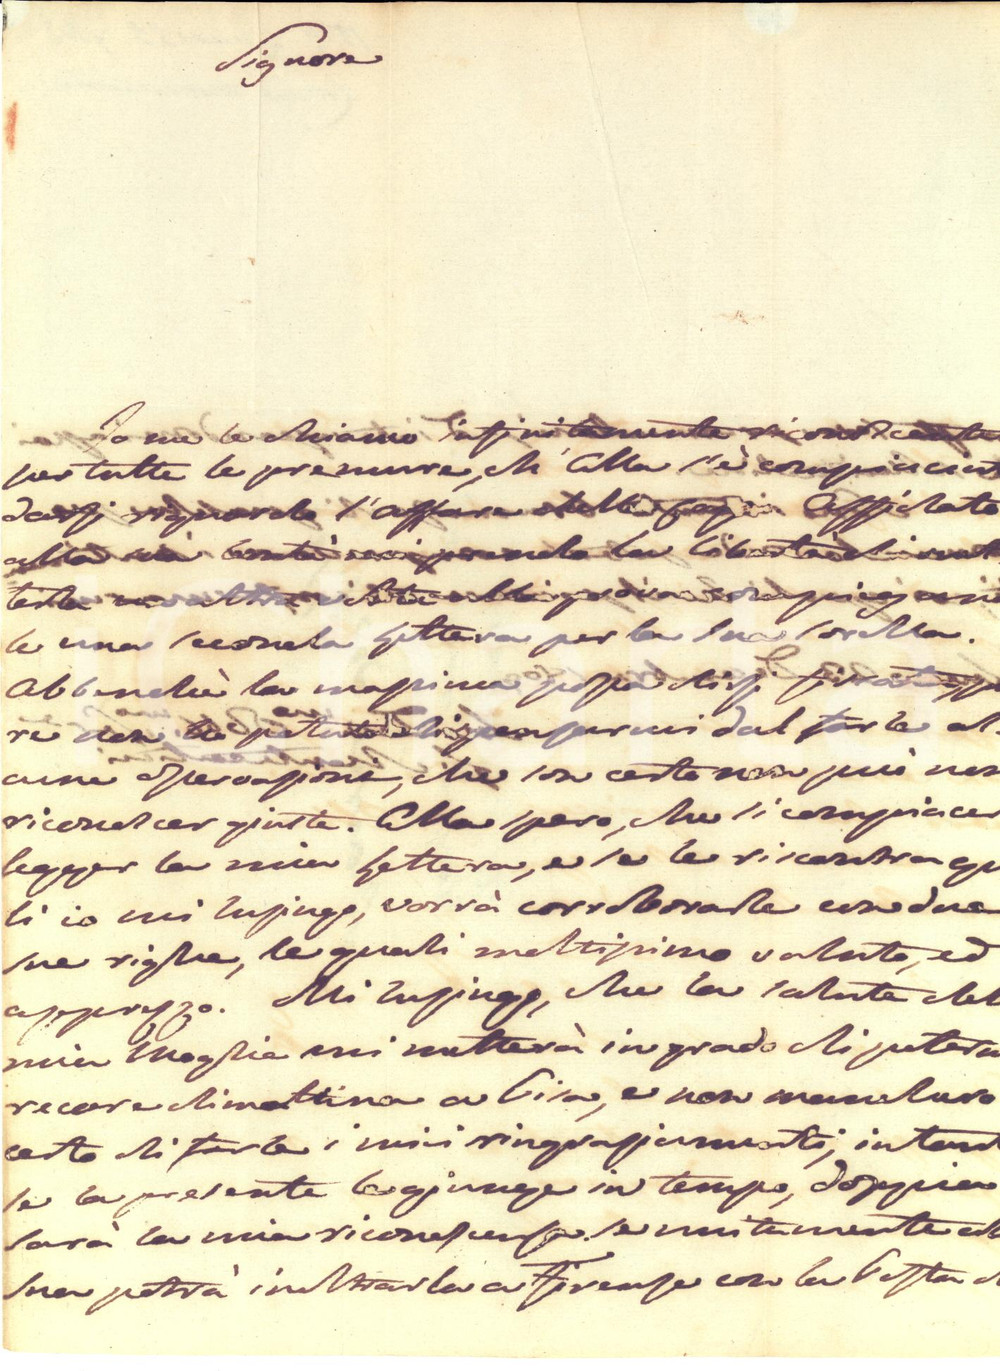 Signore
Io me le chiamo infinitamente riconoscente
per tutte le premure, ch' Ella s'è compiaciut
darsi riguardo l'affare della Affidato
alla sua bontà mi prendo la libertà di
terla
le una seconda Lettera per la sua sorella.
Abbenchè la massima
re non ho potuto dispensarmi dal farle al-
cune osservazioni, che son certo non può non
riconoscer giuste. Ella spero, che si compiacer
legger la mia Lettera, e se le riscontra qu
li io mi lusingo, vorrà corroborarle con due
sue righe, le quali moltissimo valuto, ed
apprezzo. Mi lusingo, che la salute del
mia Moglie mi metterà in grado di poterm
recare dimattina a Pisa, e non mancherò
certo di farle i miei ringraziamenti, intant
se la presente le giunge in tempo, doppia
sarà la mia riconoscenza se unitamente all
sua potrà inoltrarla a Firenze con la Posta d